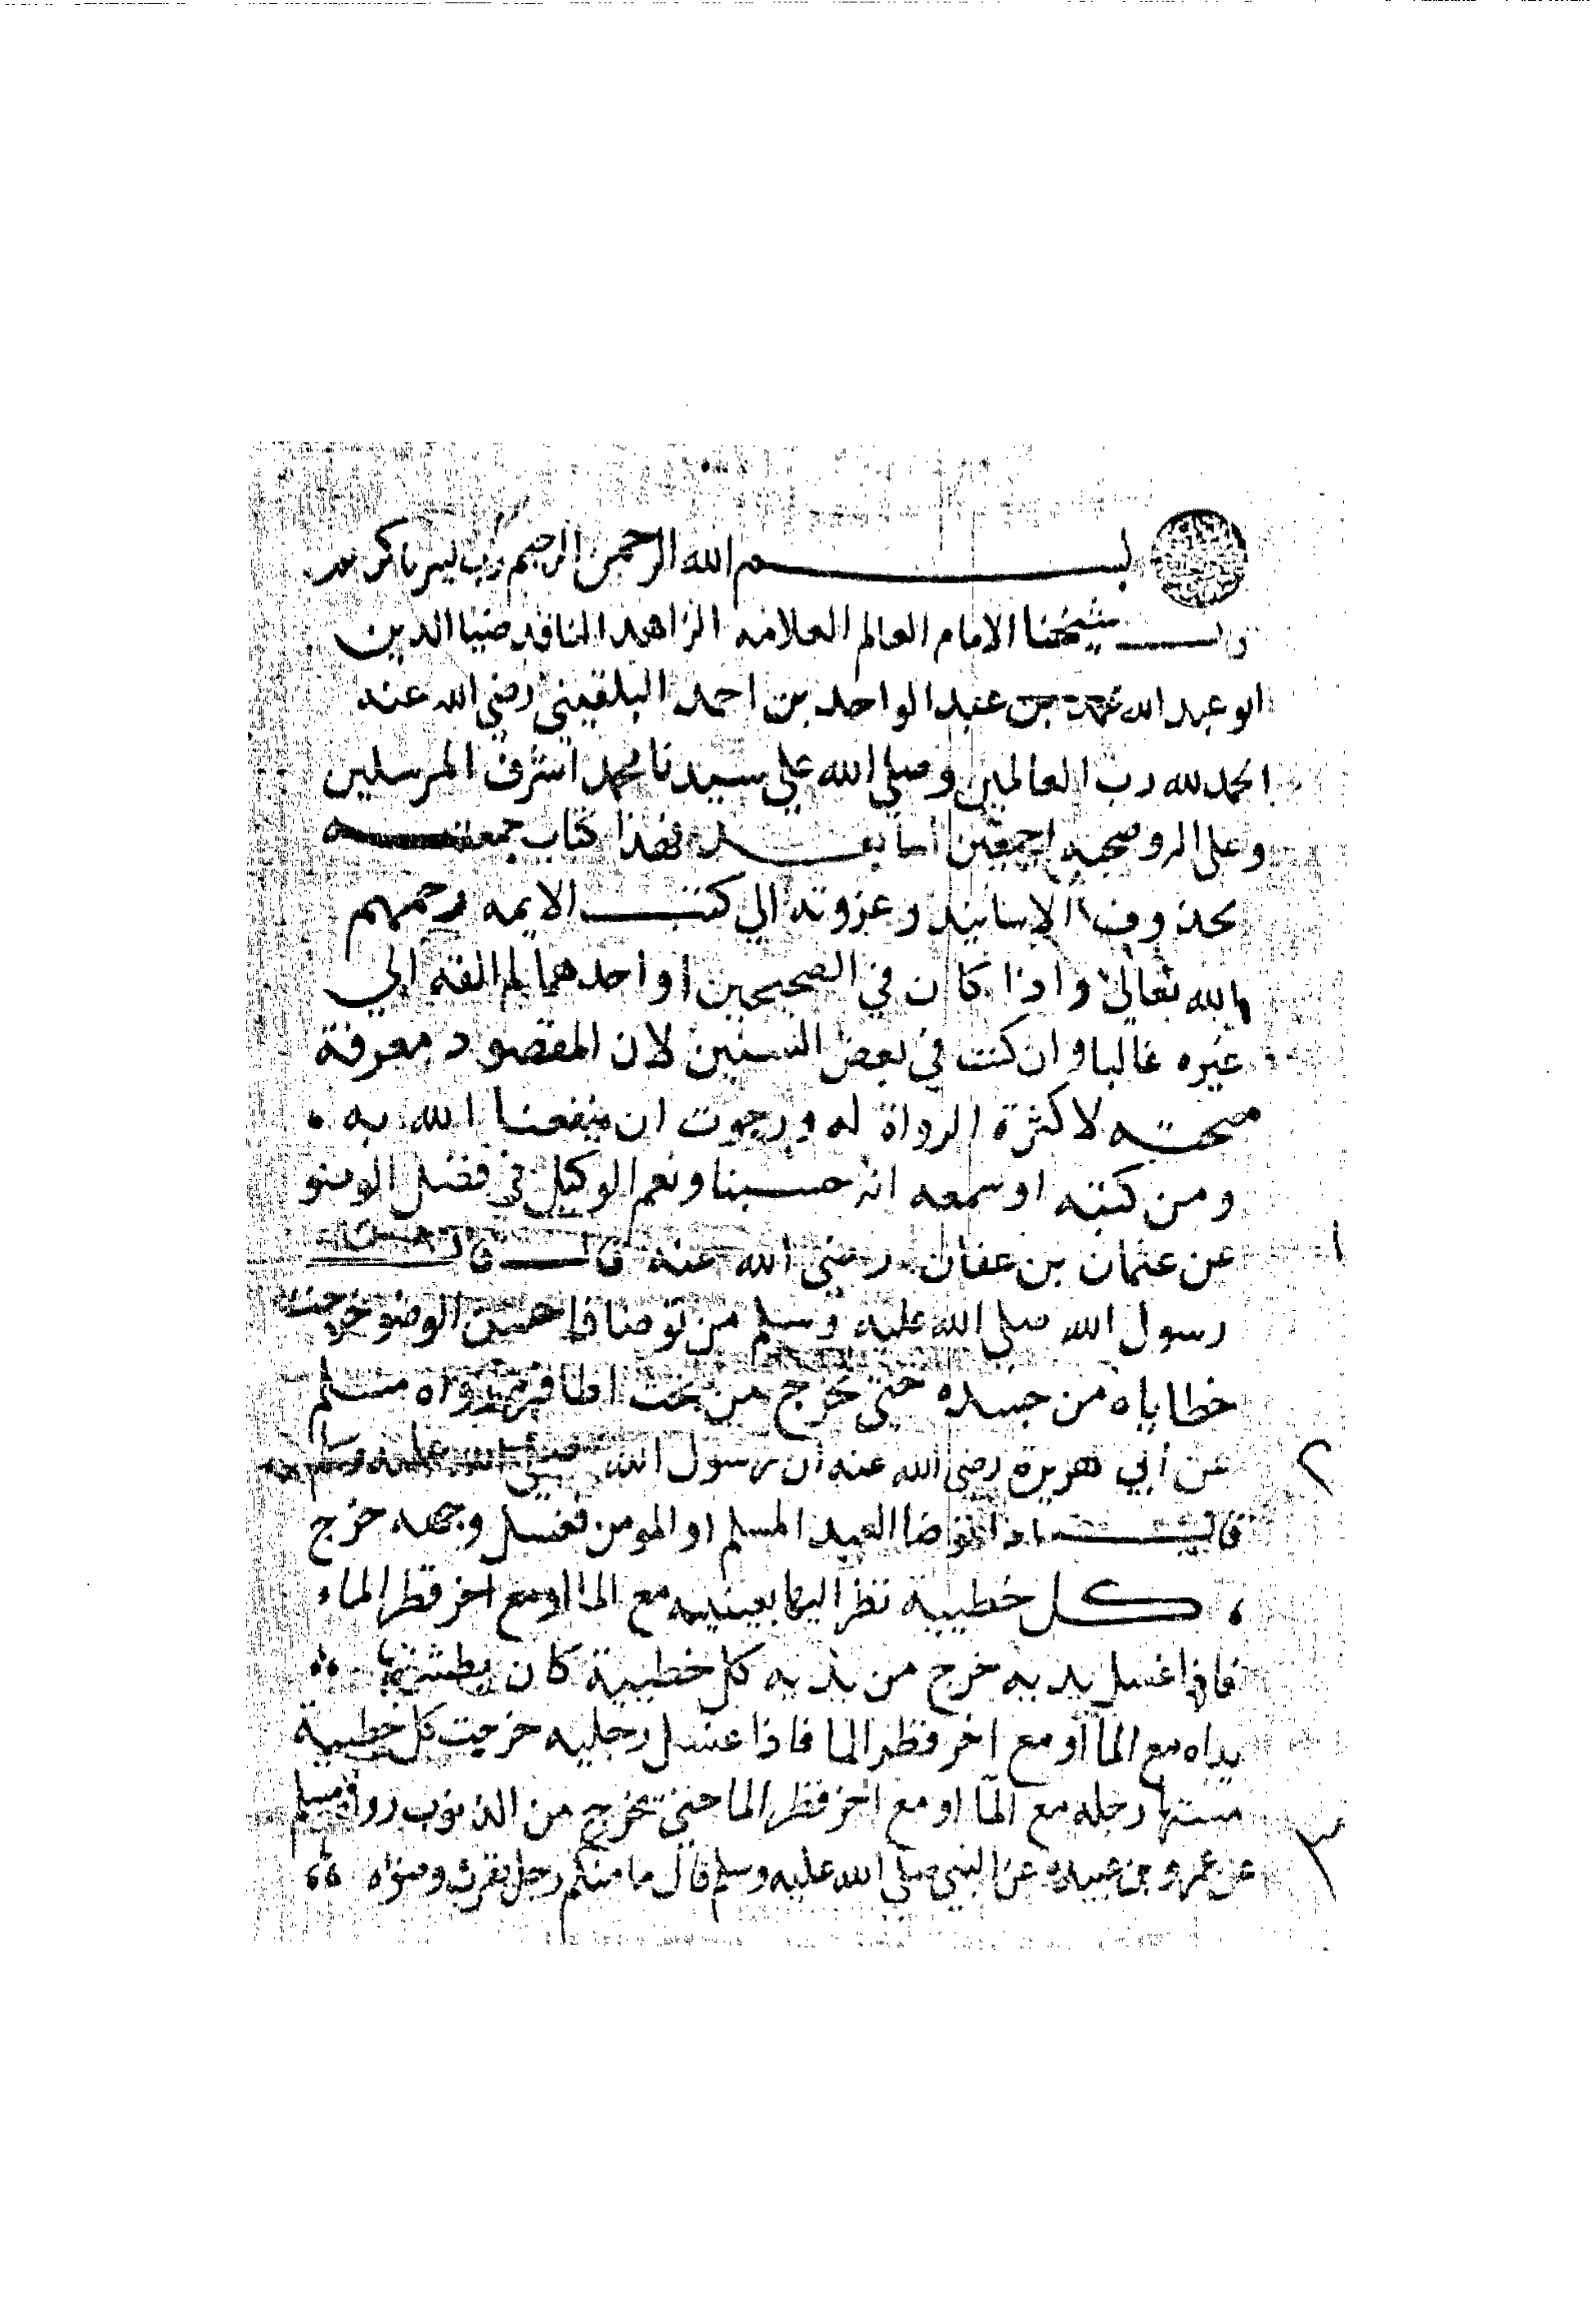 بسم الله الرحمن الرحيم رب يسر يا كريم
قال شيخنا الامام العالم العلامه الزاهد الناقد ضيا الدين
ابو عبد الله محمد بن عبد الواحد بن احمد البلقيني رضي الله عنه
الحمد لله رب العالمين وصلي الله علي سيدنا محمد اشرف المرسلين
وعلي اله وصحبه اجمعين اما بعد فهذا كتاب جمعته
محذوف الاسانيد وعزوته الي كتب الايمه رحمهم
الله تعالي واذا كان في الصحيحين او احدهما لم الفه الي
غيره غالبا وان كنت في بعض السنين لان المقصود معرفة
صحته لا كثرة الرواة له ورجوت ان ينفعنا الله به
ومن كتبه او سمعه انه حسبنا ونعم الوكيل في فضل الوضو
١ عن عثمان بن عفان رضي الله عنه قال قال
رسول الله صلي الله عليه وسلم من توضا فاحسن الوضو خرجت
خطاياه من جسده حتي تخرج من تحت اظافره رواه مسلم
٢ عن أبي هريرة رضي الله عنه ان رسول الله صلي الله عليه وسلم
قال اذا توضا العبد المسلم او المومن فغسل وجهه خرج
كل خطيية نظر اليها بعينيه مع الما او مع اخر قطر الماء
فاذا غسل يديه خرج من يديه كل خطيية كان بطشتها
يداه مع الما أو مع اخر قطر الما فاذا غسل رجليه خرجت كل خطيية
مشتها رجله مع الما او مع اخر قطر الما حتي تخرج من الذنوب رواه مسلم
٣ عن عمرو بن عبسه عن النبي صلي الله عليه وسلم قال ما منكم رجل يقرب وضواه